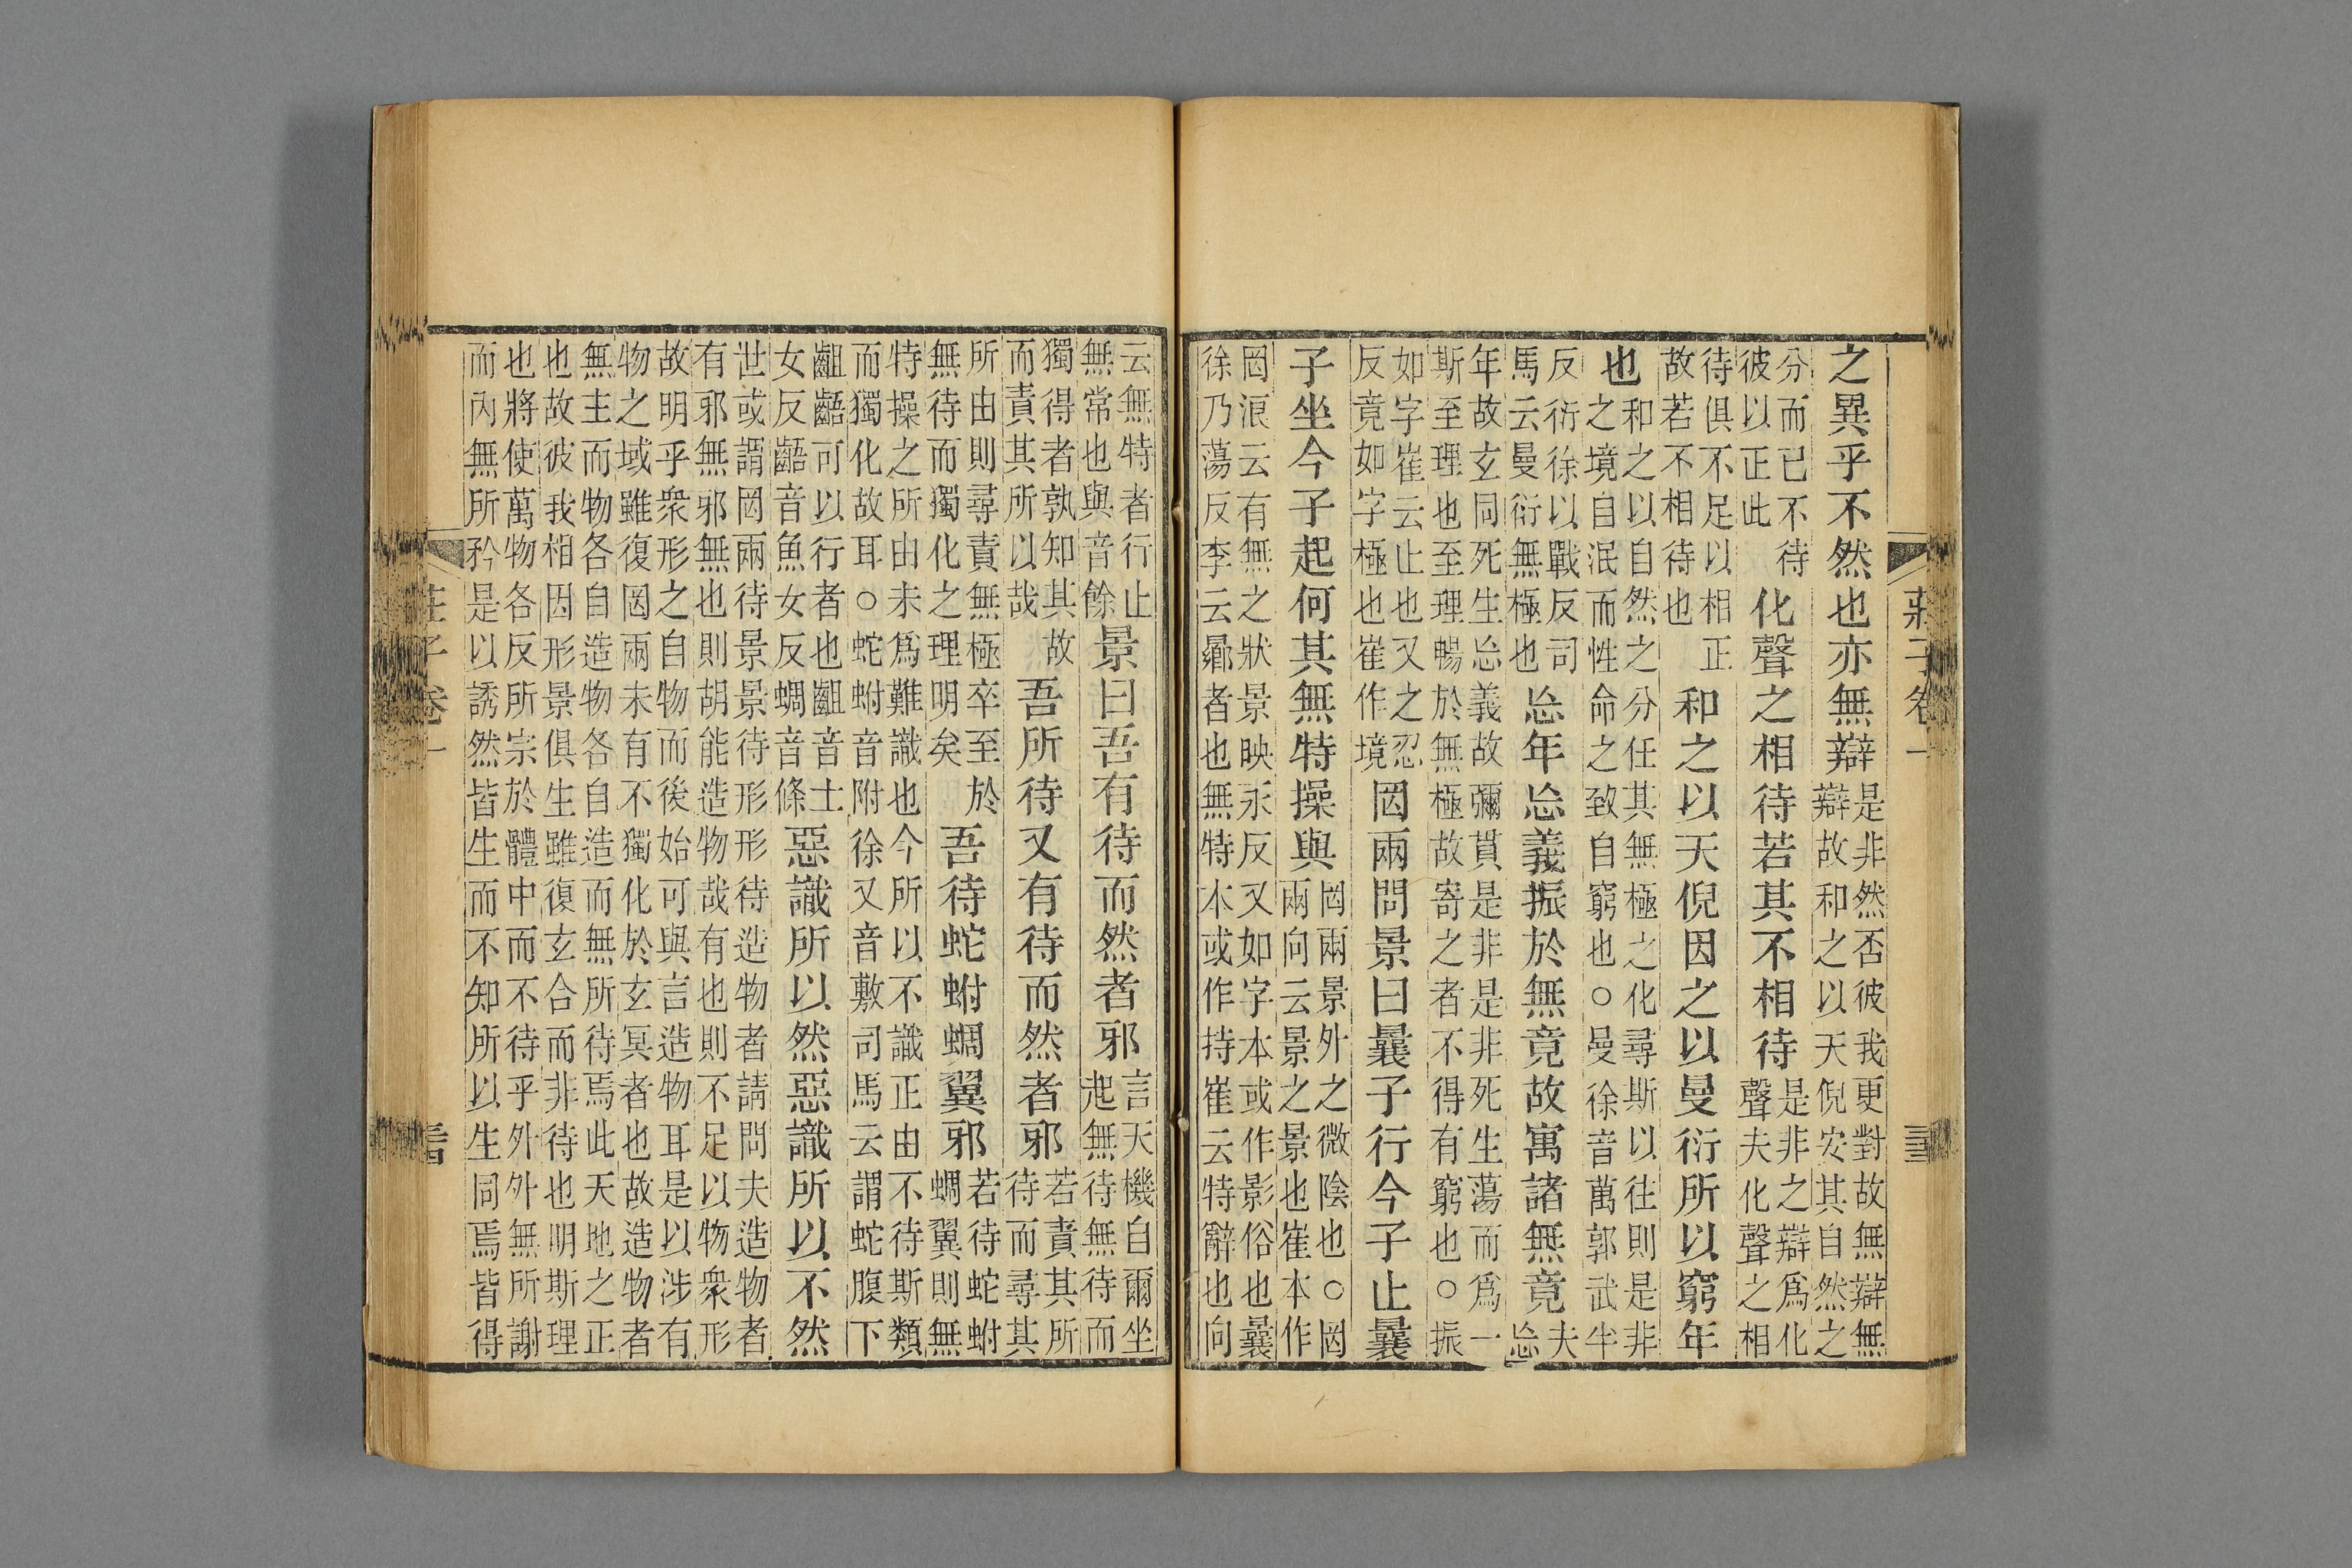 莊子卷一
之異乎不然也亦無辯
是非然否彼我更對故無辯無
辯故和之以天倪安其自然之
分而已不待
彼以正此
化聲之相待若其不相待
是非之辯爲化
聲夫化聲之相
待俱不足以相正
故若不相待也
和之以天倪因之以曼衍所以窮年
也
和之以自然之分任其無極之化尋斯以往則是非
之境自泯而性命之致自窮也○曼徐音萬郭武半
反衍徐以戰反司
馬云曼衍無極也
忘年忘義振於無竟故寓諸無竟
夫
忘
年故玄同死生忘義故彌貫是非是非死生蕩而爲一
斯至理也至理暢於無極故寄之者不得有窮也○振
如字崔云止也又之忍
反竟如字極也崔作境
罔兩問景曰曩子行今子止曩
子坐今子起何其無特操與
罔兩景外之微陰也○罔
兩向云景之景也崔本作
罔浪云有無之狀景映永反又如字本或作影俗也曩
徐乃蕩反李云曏者也無特本或作持崔云特辭也向
云無特者行止
無常也與音餘
景曰吾有待而然者邪
言天機自爾坐
起無待無待而
獨得者孰知其故
而責其所以哉
吾所待又有待而然者邪
若責其所
待而尋其
所由則尋責無極卒至於
無待而獨化之理明矣
吾待蛇蚹蜩翼邪
若待蛇蚹
蜩翼則無
特操之所由未爲難識也今所以不識正由不待斯類
而獨化故耳○蛇蚹音附徐又音敷司馬云謂蛇腹下
齟齬可以行者也齟音士
女反齬音魚女反蜩音條
惡識所以然惡識所以不然
世或謂罔兩待景景待形形待造物者請問夫造物者
有邪無邪無也則胡能造物哉有也則不足以物衆形
故明乎衆形之自物而後始可與言造物耳是以涉有
物之域雖復罔兩未有不獨化於玄冥者也故造物者
無主而物各自造物各自造而無所待焉此天地之正
也故彼我相因形景俱生雖復玄合而非待也明斯理
也將使萬物各反所宗於體中而不待乎外外無所謝
而內無所矜是以誘然皆生而不知所以生同焉皆得
莊子卷一